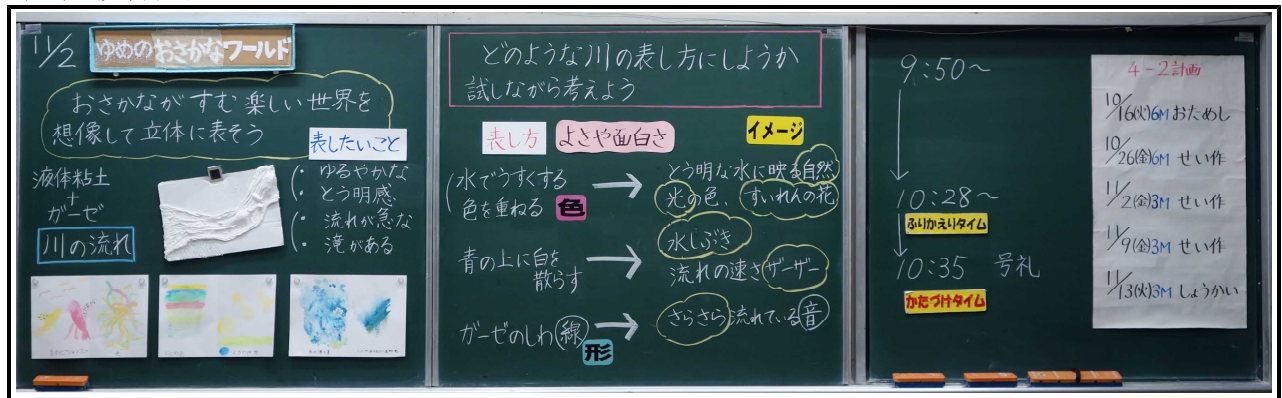 11/2
ゆめのおさかなワールド
おさかながすむ楽しい世界を
想像して立体に表そう
表したいこと
液体粘土
+
ガーゼ
川の流れ
・ゆるやかな
・とう明感
・流れが急な
・滝がある
どのような川の表し方にしようか
試しながら考えよう
表し方
よさや面白さ
イメージ
水でうすくする
色を重ねる
色
とう明な水に映る自然
光の色、すいれんの花
青の上に白を
散らす
水しぶき
流れの速さザーザー
ガーゼのしわ線
形
さらさら流れている音
9:50~
10:28~
ふりかえりタイム
10:35 号礼
かたづけタイム
4-2計画
10/16(火)6Mおためし
10/26(金)6Mせい作
11/2(金)3Mせい作
11/9(金)3Mせい作
11/13(火)3Mしょうかい